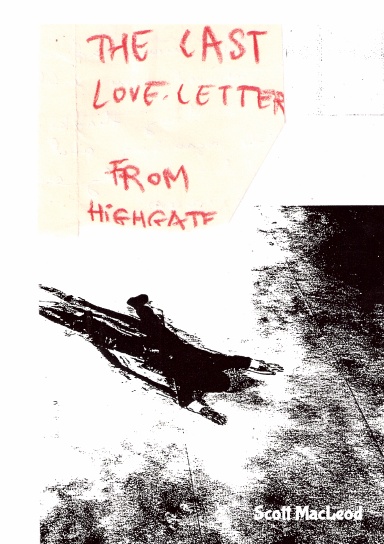 THE LAST
LOVE-LETTER
FROM
HIGHGATE
Scott MacLeod